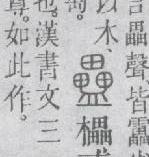 畾聲、皆靁
以木、罍 櫑
也。漢書文三
如此作。